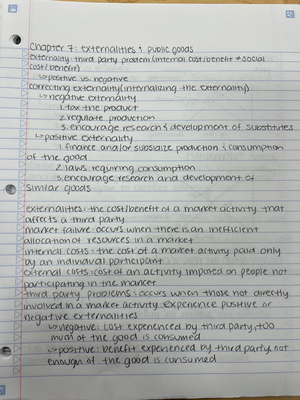 Chapter 7: externalities & public goods
externality: third party problem (internal cost/benefit ≠ social
cost/benefit)
↳ positive vs. negative
correcting externality (internalizing the externality)
↳ negative externality
1. tax the product
2. regulate production
3. encourage research & development of substitutes
↳ positive externality
1. finance and/or subsidize production & consumption
of the good
2. laws requiring consumption
3. encourage research and development of
similar goods
externalities: the cost/benefit of a market activity that
affects a third party
market failure: occurs when there is an inefficient
allocation of resources in a market
internal costs: the cost of a market activity paid only
by an individual participant
external costs: cost of an activity imposed on people not
participating in the market
third party problems: occurs when those not directly
involved in a market activity experience positive or
negative externalities
↳ negative: cost experienced by third party, too
much of the good is consumed
↳ positive: benefit experienced by third party, not
enough of the good is consumed